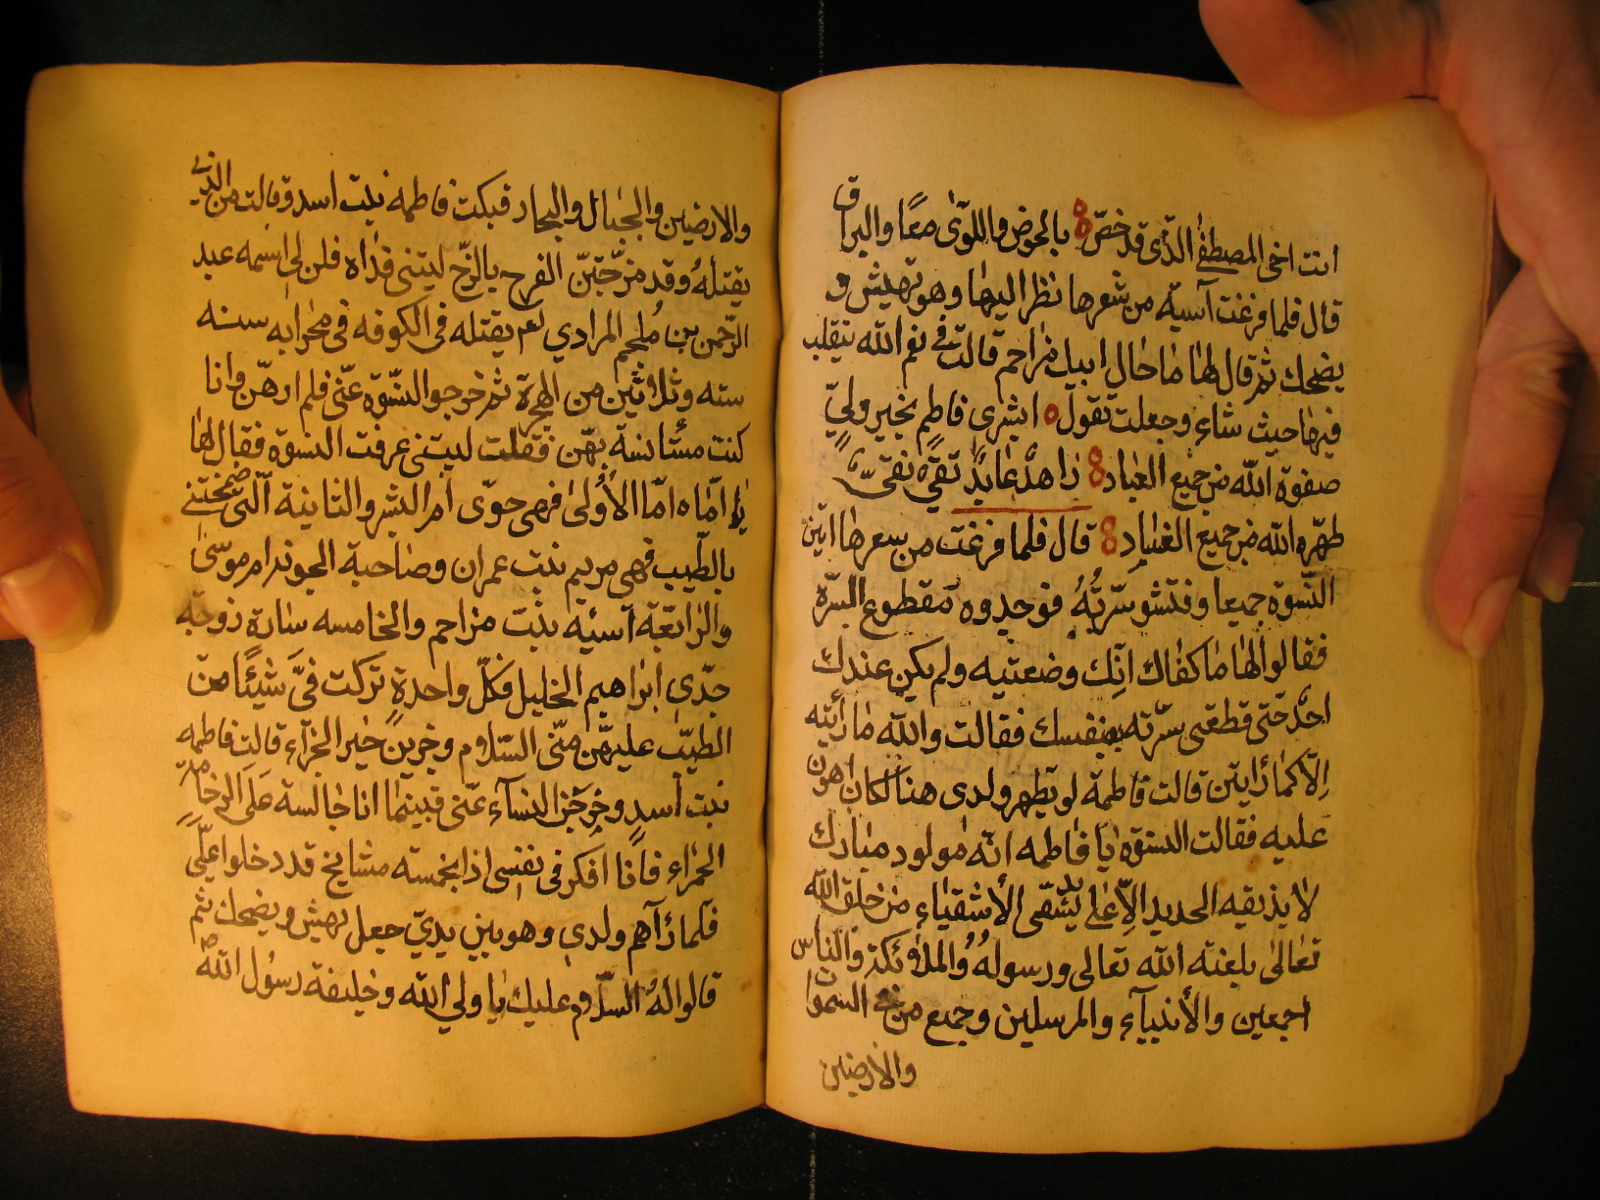 انت اخى المصطفٰى الذى قد خصّ 8 بالحوض واللوٰى معًا والبراق
قال فلما فرغت آسية من شعرها نظر اليها وهو تهيش و
يضحك ثم قال لها ما حال ابيك مزاحم قالت فى نعم الله يتقلب
فيها حيث شاء وجعلت تقول ه ابشرى فاطم بخير وليّ
صفوة الله من جميع العباد 8 زاهدٌ عابدٌ تقيّ نقيّ
طهّره الله من جميع العباد 8 قال فلما فرغت من سعرها اتين
النّسوة جميعا وفتشو سرّتهُ فوجدوه مقطوع السرّة
فقالوا لها ما كفاك انّك وضعتيه ولم يكن عندك
احدٌ حتى قطعتى سرّته بنفسك فقالت والله ما رأيته
اِلّا كما رايتن قالت فاطمة لو تطهر ولدى هنا لكان اهون
عليه فقالت النسوة يا فاطمه انّه مولود مبارك
لا يذيقه الحديد الّا على يد شقى الأشقياء من خلق الله
تعالى يلعنه الله تعالى ورسولهُ والملائكة والناس
اجمعين والأنبيآء والمرسلين وجميع من فى السموا
والأرضين
والارضين والجبال والبحار فبكت فاطمه بنت اسد وقالت من الذى
يقتلهُ وقد مزّجتنّ الفرح بالزّح ليتنى فداه فلن لى اسمه عبد
الرّحمن بن مُلجم المرادي لعم يقتله فى الكوفه فى محرابه سنه
سته وثلاثين من الهجرة ثم خرجو النسّوة عنّى فلم ارهّن وانا
كنت مستانسة بهّن فقلت ليتنى عرفت النسوة فقال لها
يا امّاه امّا الأولى فهى حوّى ام البشر والثانية الّتى ضمختنى
بالطّيب فهى مريم بنت عمران وصاحبة الجوند ام موسٰى
والرابعة آسية بنت مزاحم والخامسه سارة زوجة
جدّى ابراهيم الخليل فكلّ واحدةٍ تركت فىَّ شيئًا من
الطيّب عليهّن منّى السّلام وجزين خير الجزآء قالت فاطمه
بنت اسدٍ وخرجن النسآء عنّى فبينما انا جالسة على الرخامةِ
الحمراء فانا افكر فى نفسى اذا بخمسته مشايخ قد دخلوا علَّى
فلما رآهم ولدى وهو بين يديّ جعل يهيش ويضحك ثم
قالوا لهُ السلام عليك يا ولي الله وخليفة رسول الله ص